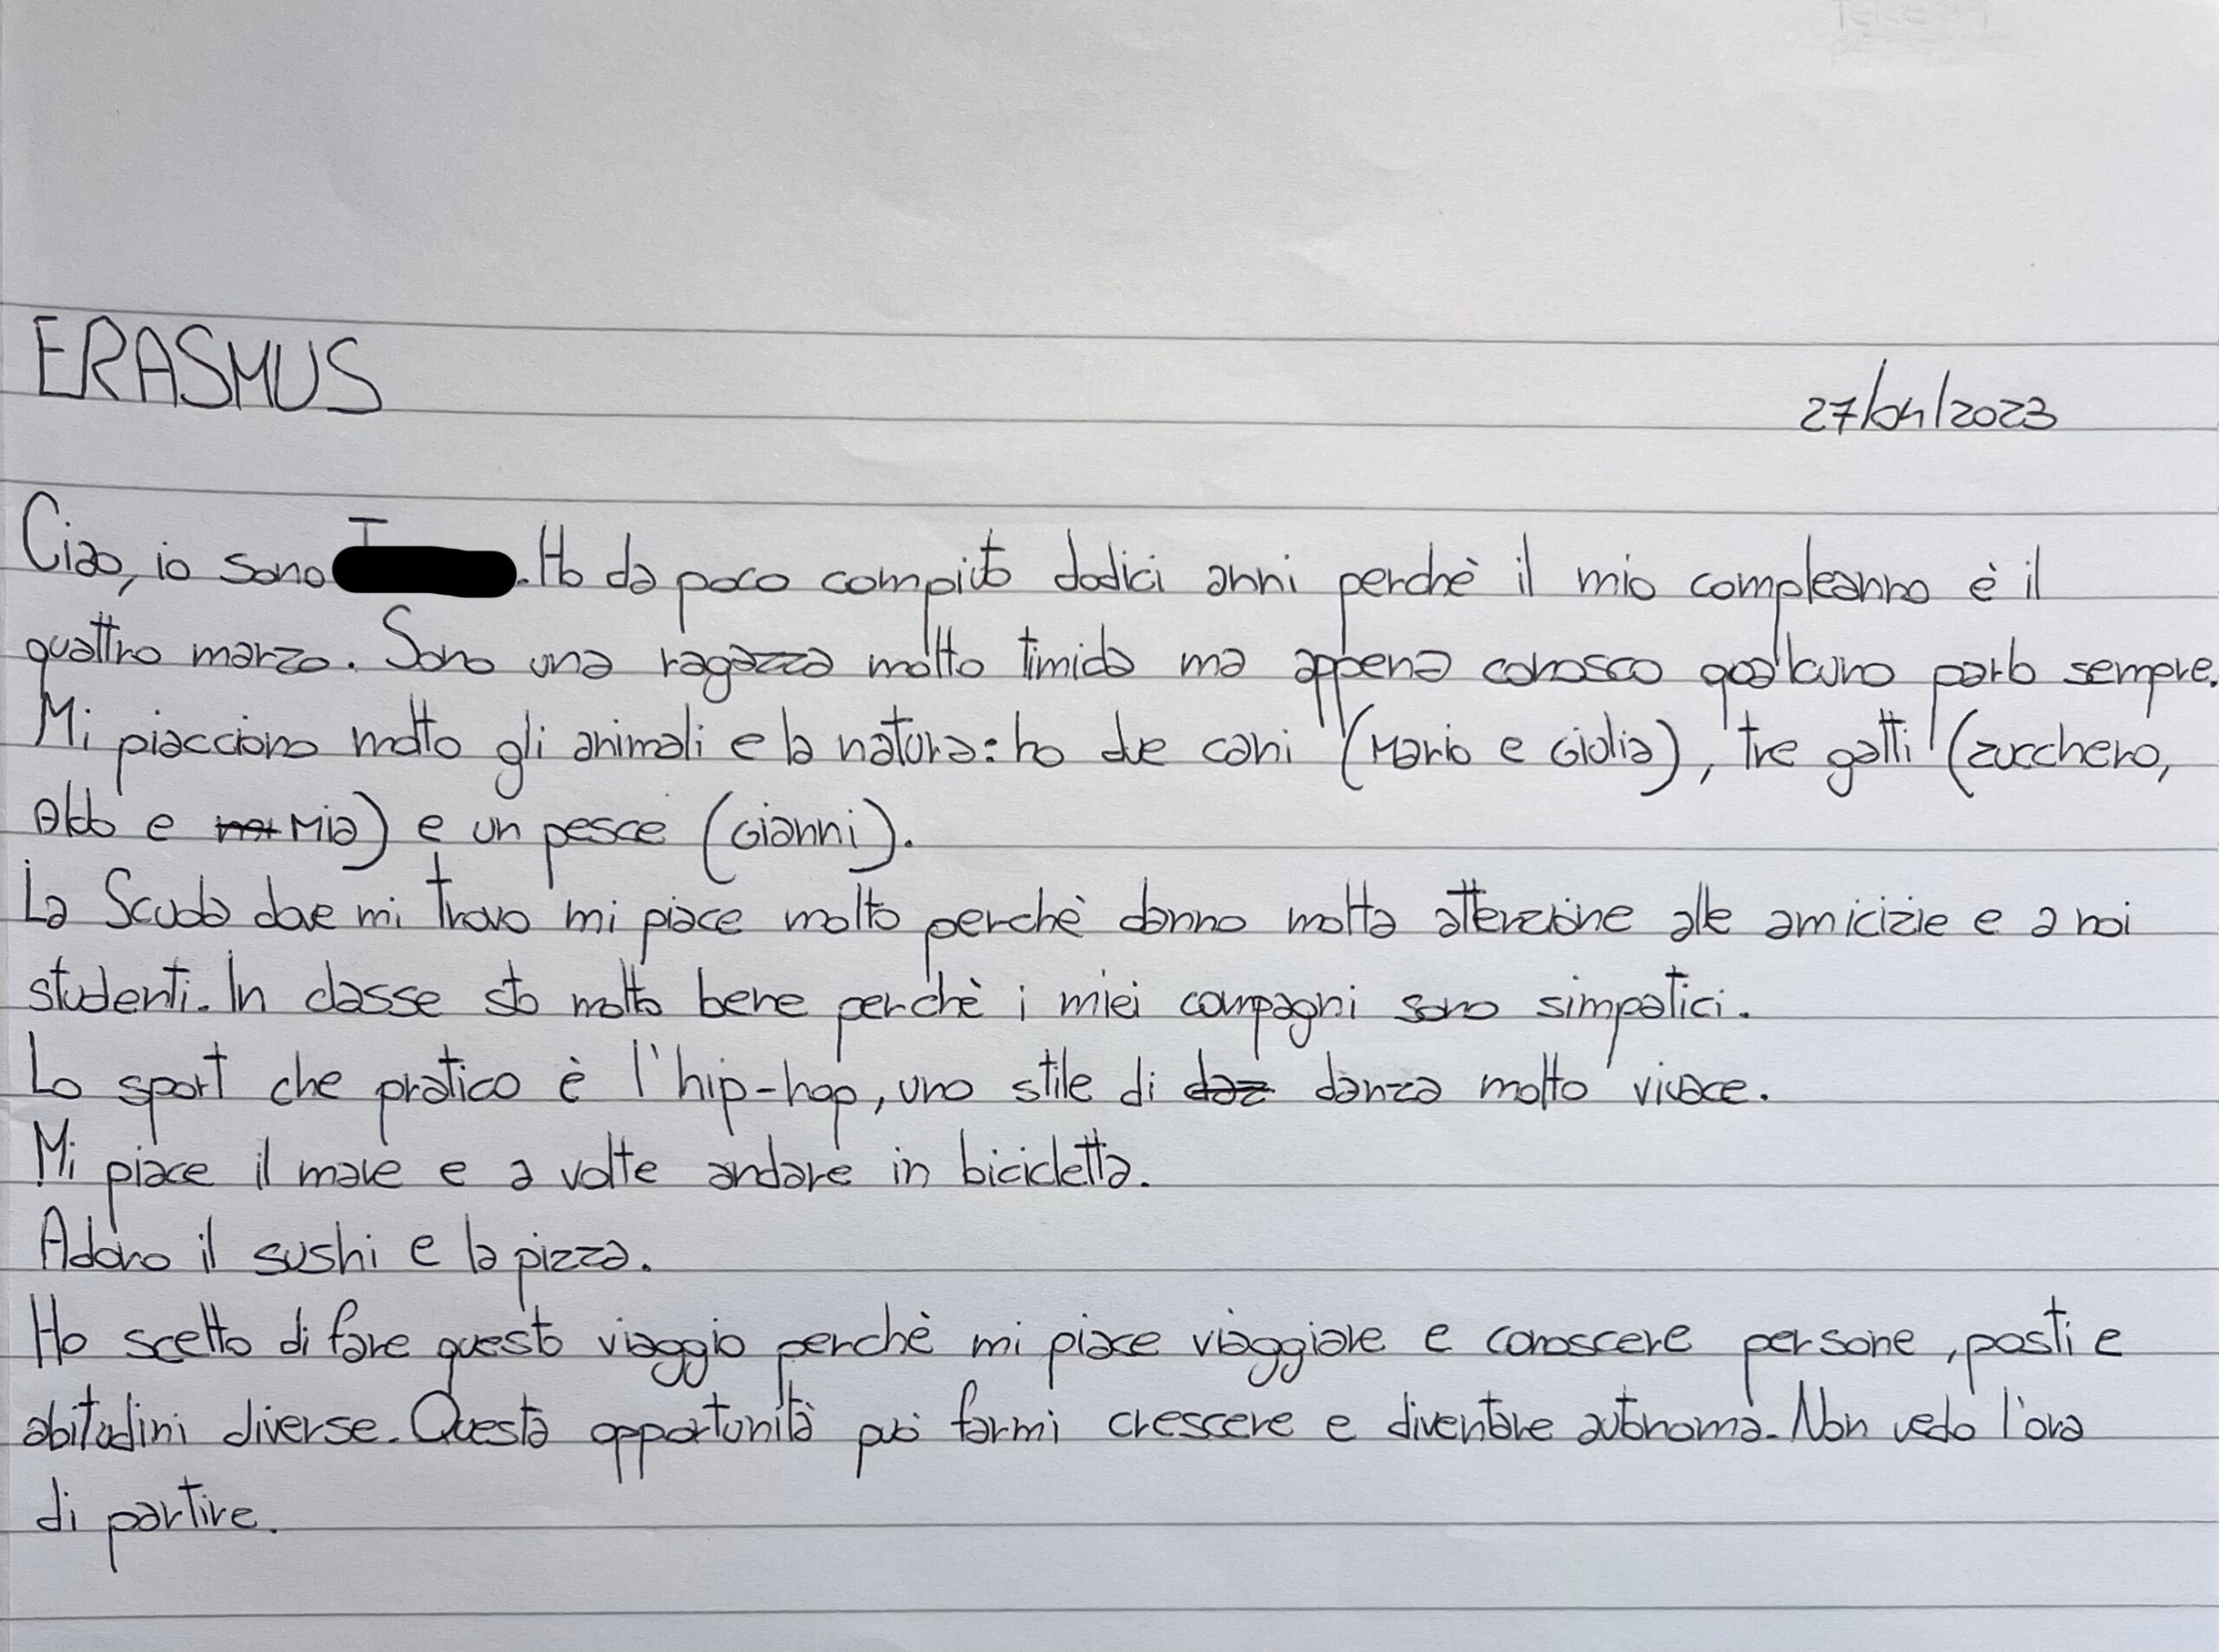 ERASMUS
27/04/2023
Ciao, io sono . Ho da poco compiuto dodici anni perchè il mio compleanno è il
quattro marzo. Sono una ragazza molto timida ma appena conosco qualcuno parlo sempre.
Mi piacciono molto gli animali e la natura: ho due cani (Mario e Giulia), tre gatti (zucchero,
Aldo e Mia) e un pesce (Gianni).
La Scuola dove mi trovo mi piace molto perchè danno molta attenzione alle amicizie e a noi
studenti. In classe sto molto bene perchè i miei compagni sono simpatici.
Lo sport che pratico è l'hip-hop, uno stile di danza molto vivace.
Mi piace il mare e a volte andare in bicicletta.
Adoro il sushi e la pizza.
Ho scelto di fare questo viaggio perchè mi piace viaggiare e conoscere persone, posti e
abitudini diverse. Questa opportunità può farmi crescere e diventare autonoma. Non vedo l'ora
di partire.